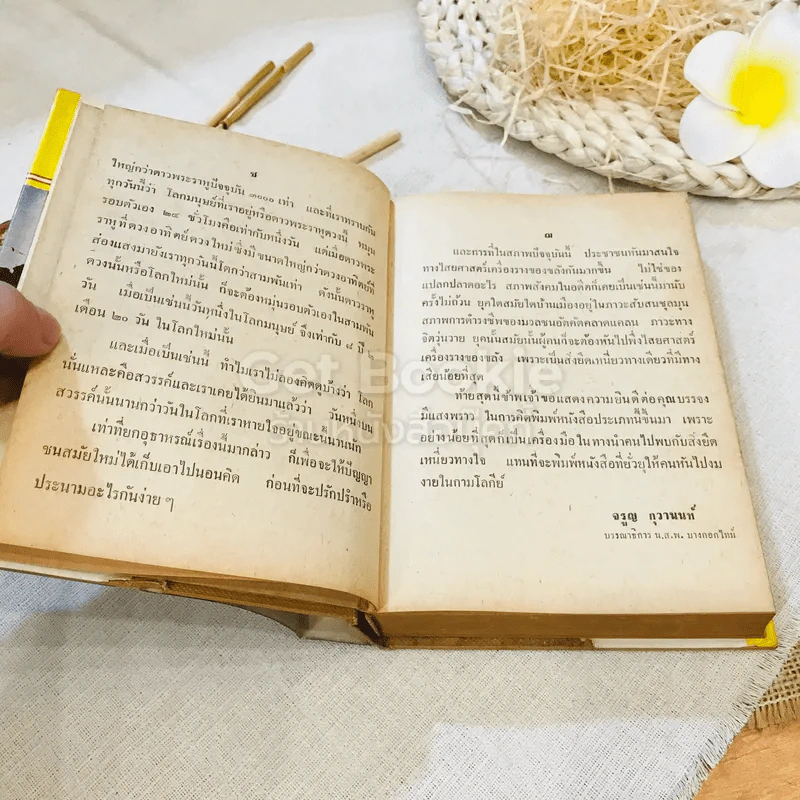 ช
ใหญ่กว่าดาวพระราหูปัจจุบัน ๓๐๐๐ เท่า และที่เราทราบกัน
ทุกวันนี้ว่า โลกมนุษย์ที่เราอยู่หรือดาวพระราหุดวงนี้ หมุน
รอบตัวเอง ๒๔ ชั่วโมงคือเท่ากับหนึ่งวัน แต่เมื่อดาวพระ
ราหูที่ดวงอาทิตย์ดวงใหม่ซึ่งมีขนาดใหญ่กว่าดวงอาทิตย์ที่
ส่องแสงมายังเราทุกวันนี้โตกว่าสามพันเท่า ดังนั้นดาวราหู
ดวงนั้นหรือโลกใหม่นั้น ก็จะต้องหมุ่นรอบตัวเองในสามพัน
วัน เมื่อเป็นเช่นนี้วันหนึ่งในโลกมนุษย์ จึงเท่ากับ ๘ ปี ๒
เดือน ๒๐ วัน ในโลกใหม่นั้น
และเมื่อเป็นเช่นนี้ ทำไมเราไม่ลองคิดดูบ้างว่า โลก
นั่นแหละคือสวรรค์และเราเคยได้ยินมาแล้วว่า วันหนึ่งบน
สวรรค์นั้นนานกว่าวันในโลกที่เราหายใจอยู่ขณะนี้นานนัก
เท่าที่ยกอุธาหรณ์เรื่องนี้มากล่าว ก็เพื่อจะให้ปัญญา
ชนสมัยใหม่ได้เก็บเอาไปนอนคิด ก่อนที่จะปรักปรำหรือ
ประนามอะไรกันง่าย ๆ
ฌ
และการที่ในสภาพปัจจุบันนี้ ประชาชนหันมาสนใจ
ทางไสยศาสตร์เครื่องรางของขลังกันมากขึ้น ไม่ใช่ของ
แปลกปลาดอะไร สภาพสังคมในอดีตก็เคยเป็นเช่นนี้มานับ
ครั้งไม่ถ้วน ยุคใดสมัยใดบ้านเมืองอยู่ในภาวะสับสนชุลมุน
สภาพการดำรงชีพของมวลชนอัตคัดคลาดแคลน ภาวะทาง
จิตวุ่นวาย ยุคนั้นสมัยนั้นผู้คนก็จะต้องหันไปพึ่งไสยศาสตร์
เครื่องรางของขลัง เพราะเป็นสิ่งยึดเหนี่ยวทางเดียวที่มีทาง
เสียน้อยที่สุด
ท้ายสุดนี้ข้าพเจ้าขอแสดงความยินดีต่อคุณบรรจง
มีแสงพราว ในการคิดพิมพ์หนังสือประเภทนี้ขึ้นมา เพราะ
อย่างน้อยที่สุดก็เป็นเครื่องมือในทางนำคนไปพบกับสิ่งยึด
เหนี่ยวทางใจ แทนที่จะพิมพ์หนังสือที่ยั่วยุให้คนหันไปงม
งายในกามโลกีย์
จรูญ กุวานนท์
บรรณาธิการ น.ส.พ. บางกอกไทม์
Got Bookie